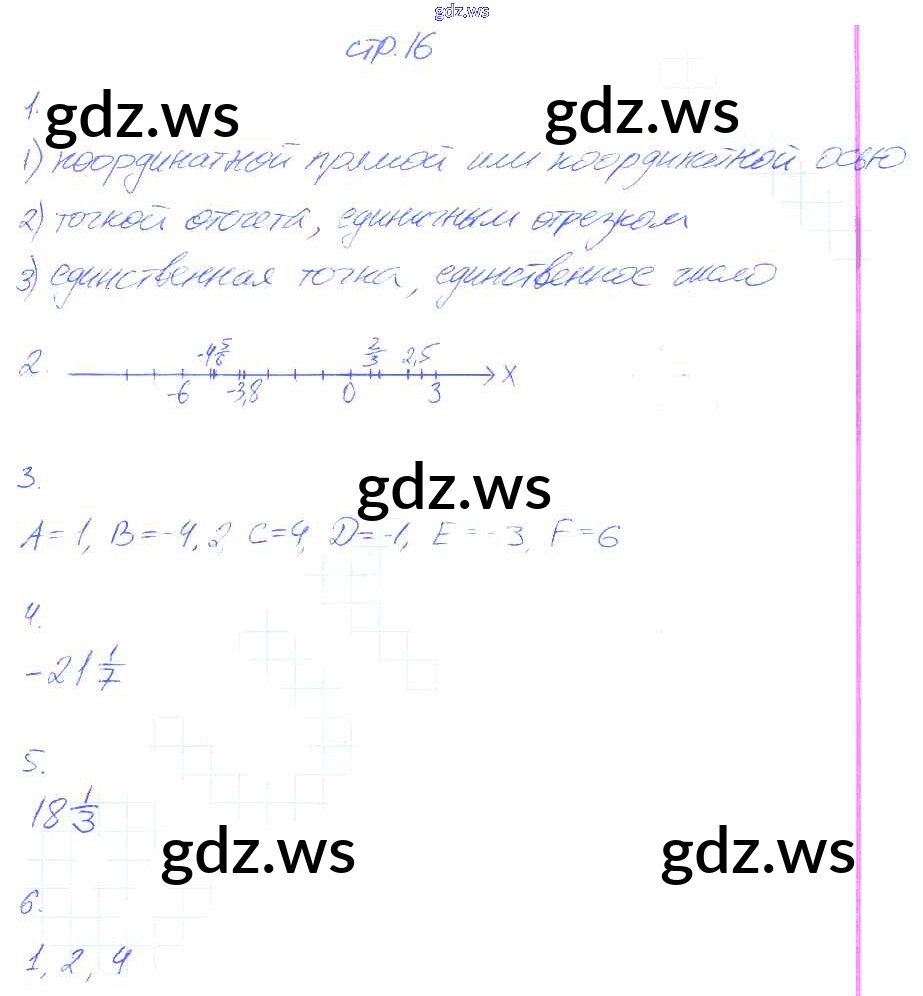 gdz.ws
стр. 16
1.
gdz.ws
gdz.ws
1) координатной прямой или координатной осью
2) точкой отсчета, единичным отрезком
3) единственная точка, единственное число
2.
-4 5/6 2/3 2,5
-6 -3,8 0 3 X
3.
gdz.ws
A = 1, B = -4,2 C = 4, D = -1, E = -3, F = 6
4.
-21 1/7
5.
18 1/3
gdz.ws
gdz.ws
6.
1, 2, 4